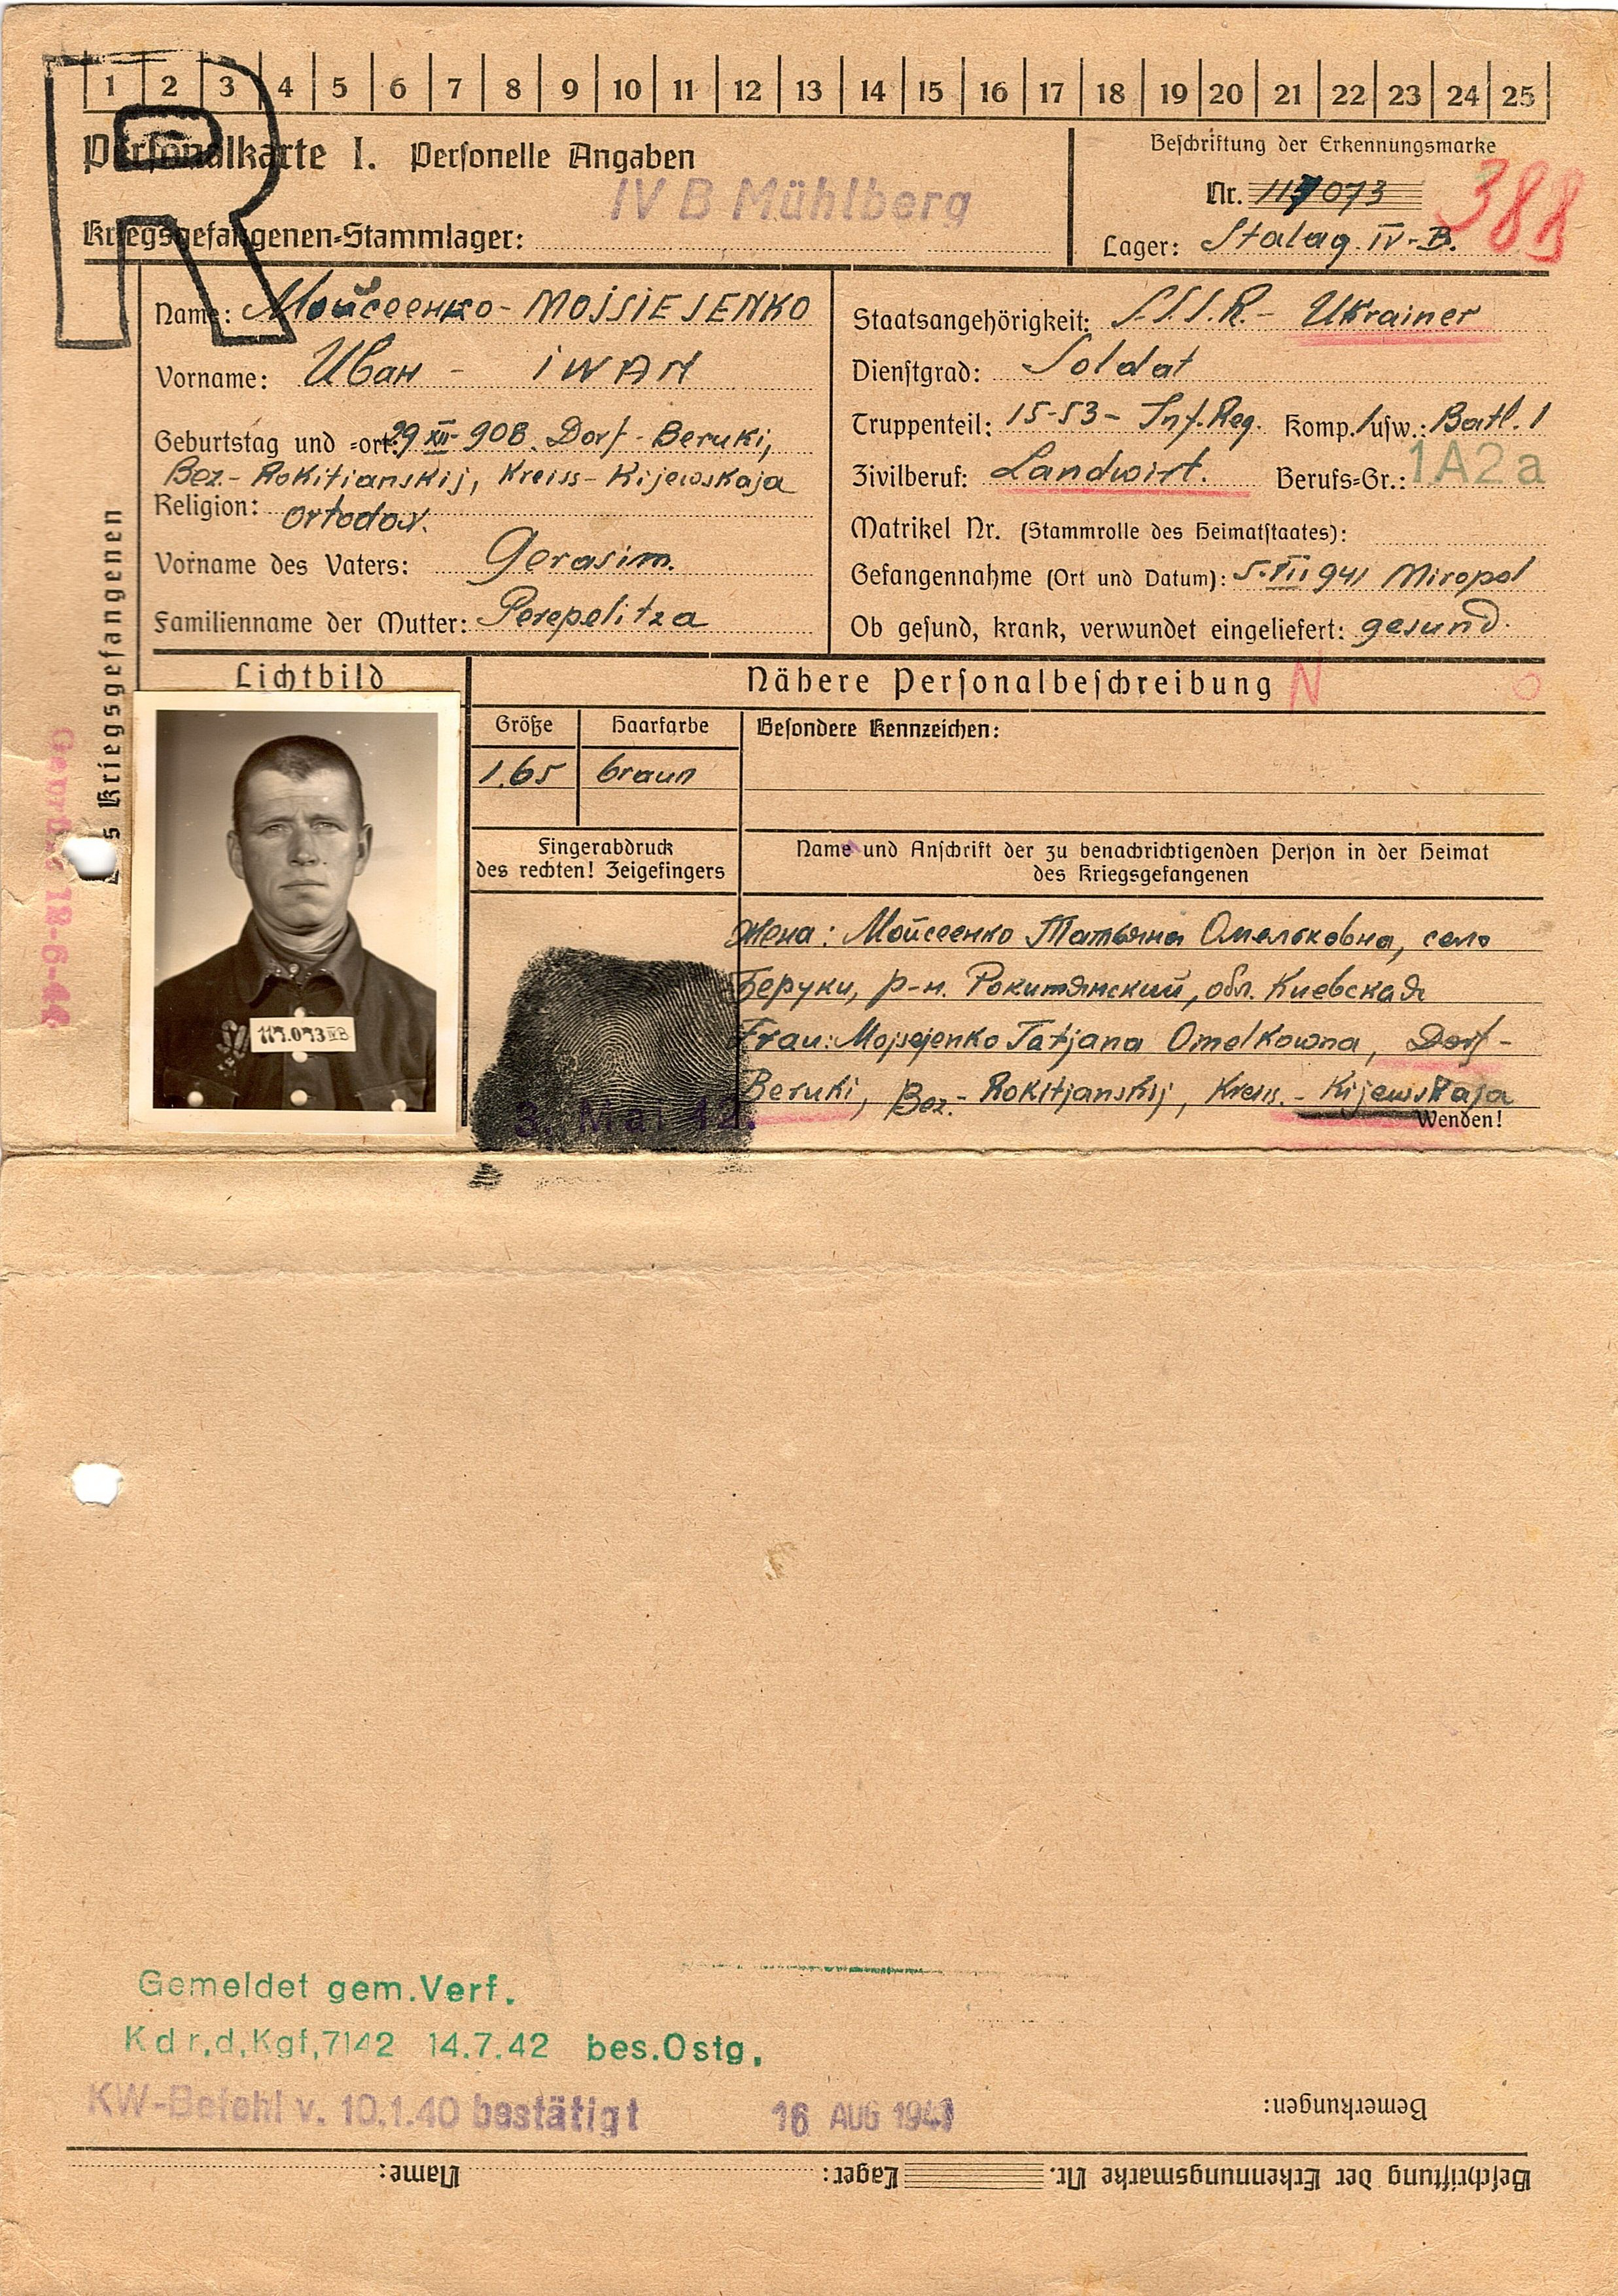 1 2 3 4 5 6 7 8 9 10 11 12 13 14 15 16 17 18 19 20 21 22 23 24 25
R
Personalkarte I. Personelle Angaben
IV B Mühlberg
Kriegsgefangenen-Stammlager:
Beschriftung der Erkennungsmarke
Nr. 117073
388
Lager: Stalag IV-B.
Name: Мойсеенко - MOJSIEJENKO
Vorname: Иван - IWAN
Geburtstag und =ort: 29 XII 908. Dorf - Beruki,
Bez.- Rokitianskij, Kreiss - Kijewskaja
Religion: Ortodox.
Vorname des Vaters: Gerasim.
Familienname der Mutter: Perepelitza
Staatsangehörigkeit: S.S.S.R.- Ukrainer
Dienstgrad: Soldat
Truppenteil: 15-53- Inf. Reg. Komp. usw.: Batl. 1
Zivilberuf: Landwirt. Berufs=Gr.: 1A2a
Matrikel Nr. (Stammrolle des Heimatstaates):
Gefangennahme (Ort und Datum): 5.VII 941 Miropol
Ob gesund, krank, verwundet eingeliefert: gesund.
Kriegsgefangenen
Lichtbild
117.073 IVB
Nähere Personalbeschreibung N
Größe Haarfarbe Besondere Kennzeichen:
1.65 braun
Fingerabdruck
des rechten! Zeigefingers
3. Mai 42.
Name und Anschrift der zu benachrichtigenden Person in der Heimat
des Kriegsgefangenen
Жена: Мойсеенко Татьяна Омельковна, село
Беруки, р-н. Рокитянский, обл. Киевская
Frau: Mojsejenko Tatjana Omelkowna, Dorf -
Beruki, Bez.- Rokitjanskij, Kreis. - Kijewskaja
Wenden!
Gemeldet gem.Verf.
Kdr.d.Kgf.7142 14.7.42 bes.Ostg.
KW-Befehl v. 10.1.40 bestätigt 16 AUG 194
Bemerkungen:
Beschriftung der Erkennungsmarke Nr. Lager: Name: